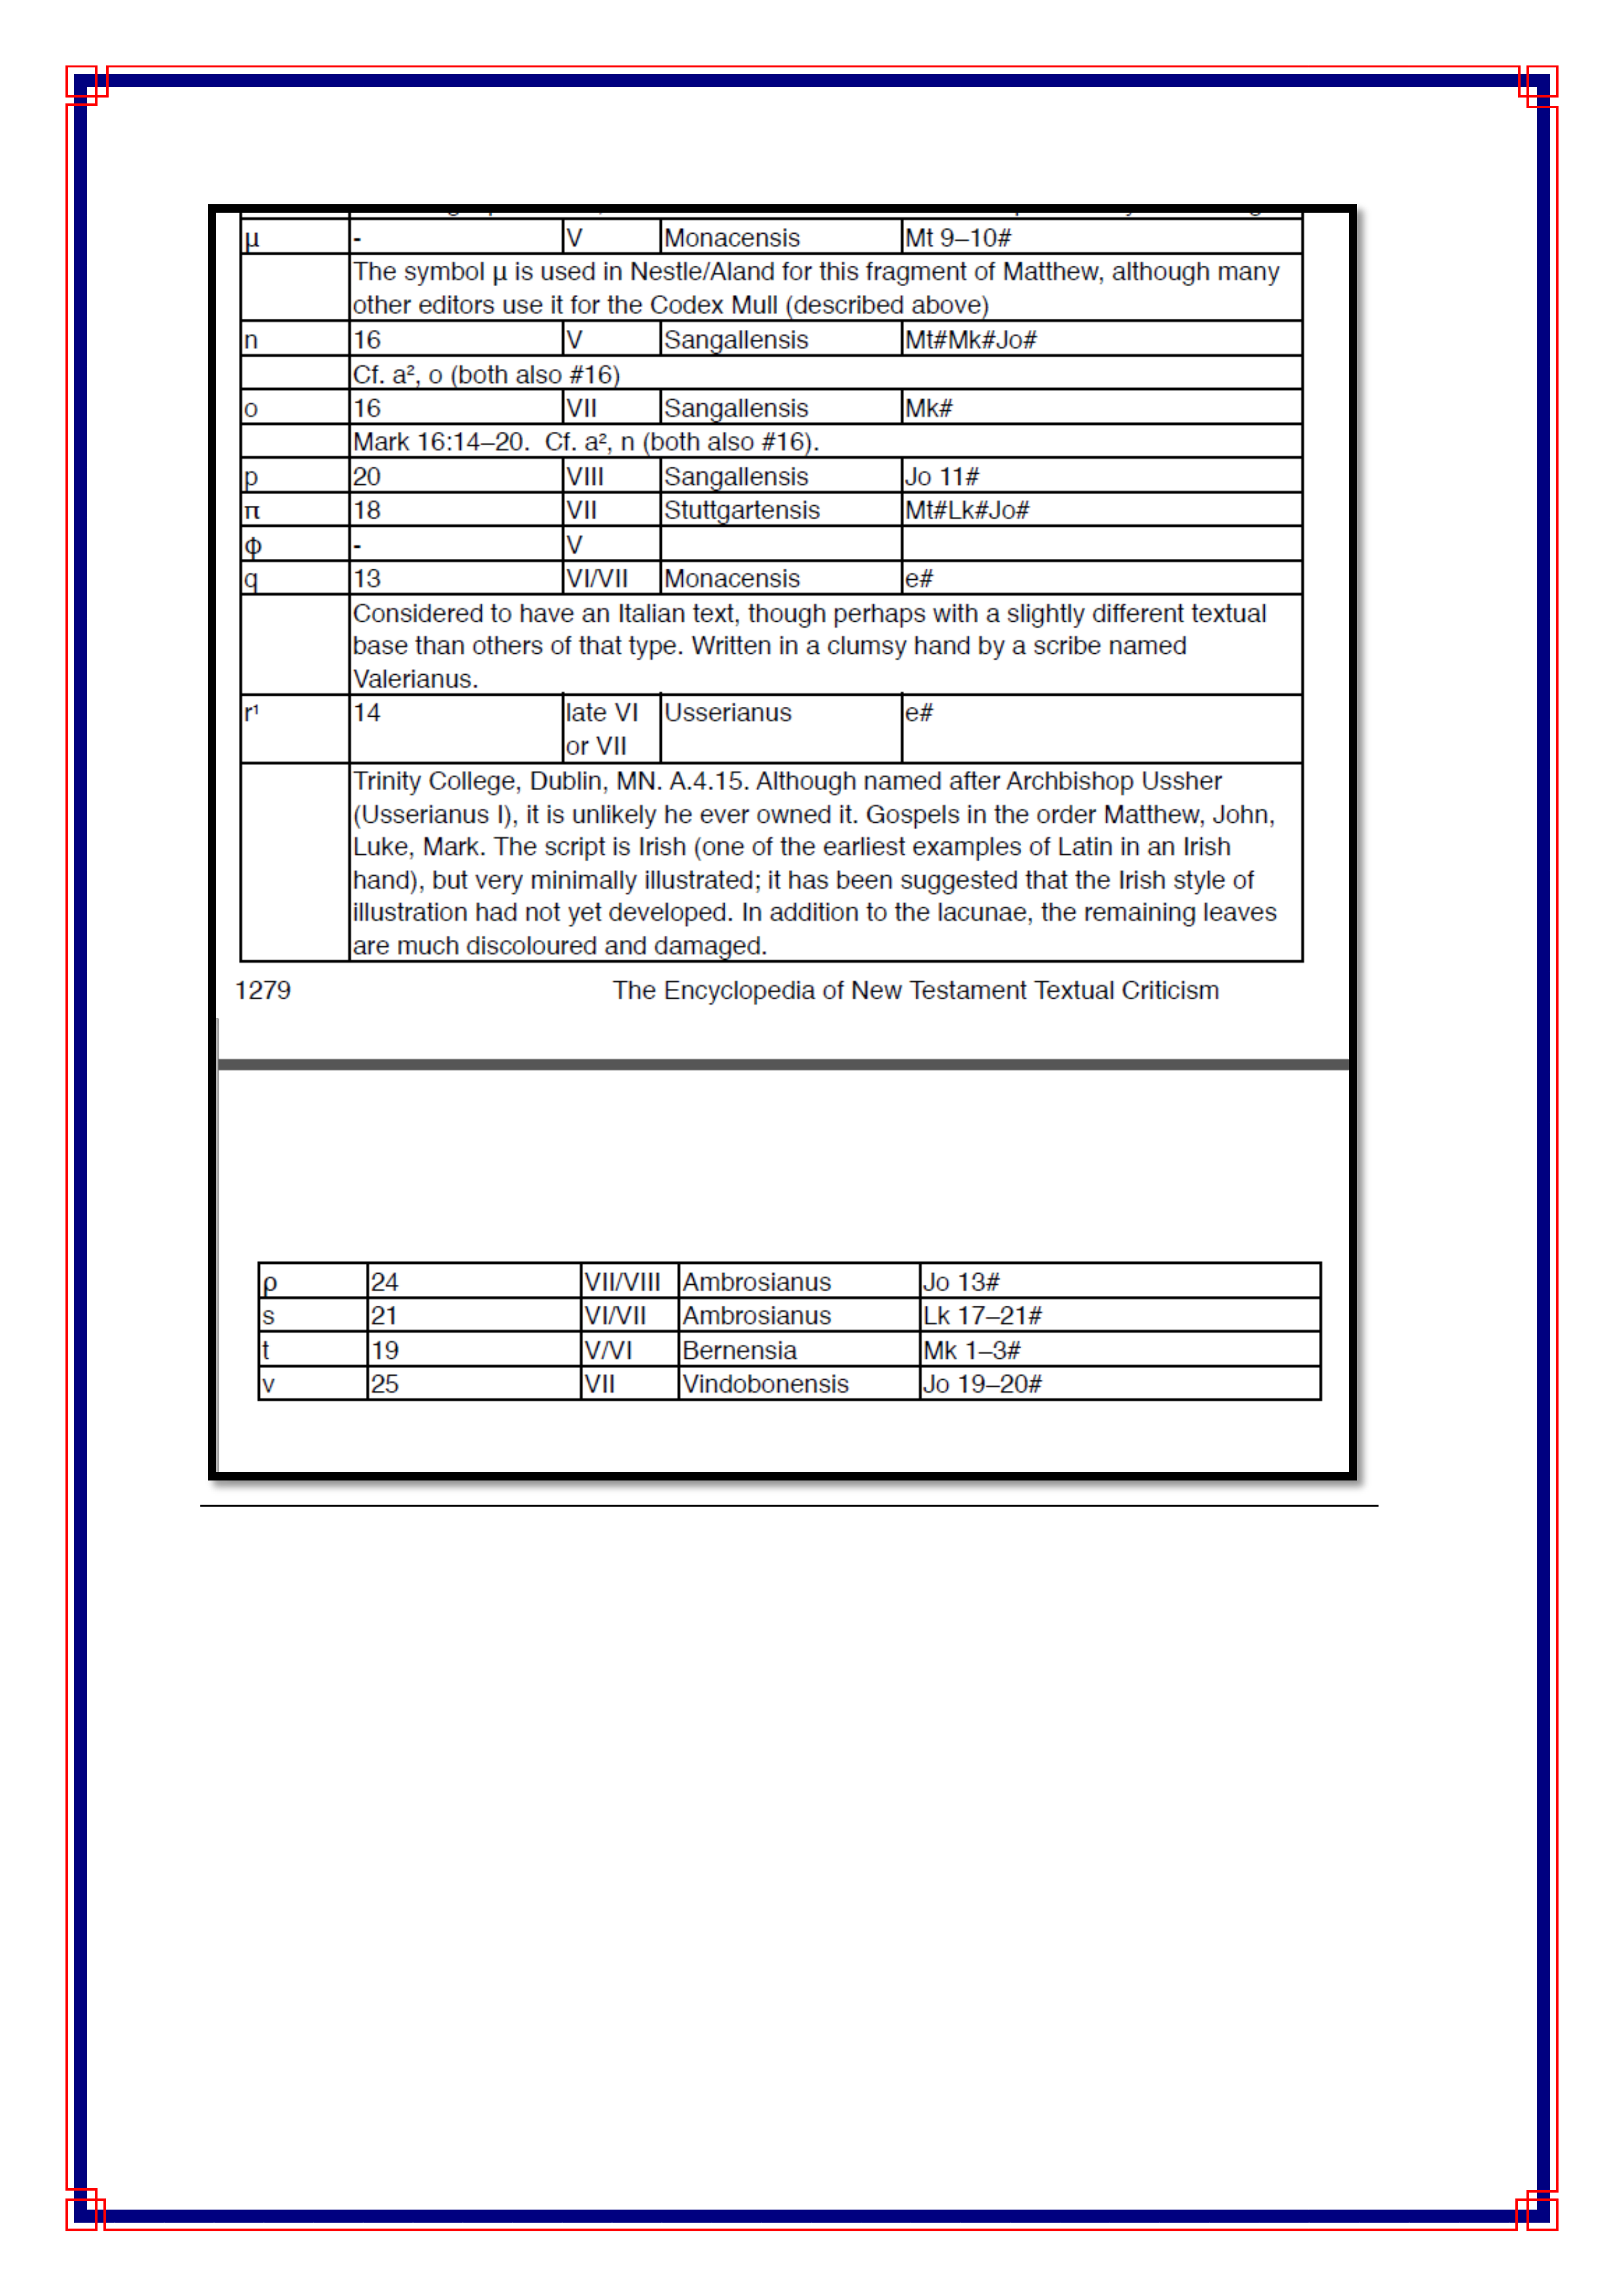 μ - V Monacensis Mt 9–10#
The symbol μ is used in Nestle/Aland for this fragment of Matthew, although many
other editors use it for the Codex Mull (described above)
n 16 V Sangallensis Mt#Mk#Jo#
Cf. a², o (both also #16)
o 16 VII Sangallensis Mk#
Mark 16:14–20. Cf. a², n (both also #16).
p 20 VIII Sangallensis Jo 11#
π 18 VII Stuttgartensis Mt#Lk#Jo#
φ - V
q 13 VI/VII Monacensis e#
Considered to have an Italian text, though perhaps with a slightly different textual
base than others of that type. Written in a clumsy hand by a scribe named
Valerianus.
r¹ 14 late VI Usserianus e#
or VII
Trinity College, Dublin, MN. A.4.15. Although named after Archbishop Ussher
(Usserianus I), it is unlikely he ever owned it. Gospels in the order Matthew, John,
Luke, Mark. The script is Irish (one of the earliest examples of Latin in an Irish
hand), but very minimally illustrated; it has been suggested that the Irish style of
illustration had not yet developed. In addition to the lacunae, the remaining leaves
are much discoloured and damaged.
1279 The Encyclopedia of New Testament Textual Criticism
ρ 24 VII/VIII Ambrosianus Jo 13#
s 21 VI/VII Ambrosianus Lk 17–21#
t 19 V/VI Bernensia Mk 1–3#
v 25 VII Vindobonensis Jo 19–20#